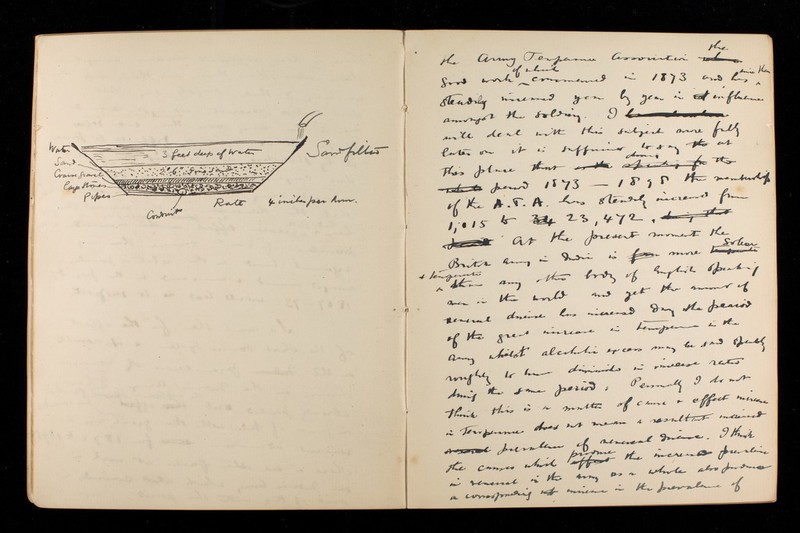 Water
3 feet deep of water
Sand filter
Sand
Coarse gravel
Large stones
Pipes
Conduit
Rate 4 inches per hour.
the Army Temperance association the
good work of which commenced in 1873 and has since then
steadily increased year by year in influence
amongst the soldiery. I
will deal with this subject more fully
later on it is sufficient to say at
this place that during the
period 1873 – 1898 the membership
of the A.T.A. has steadily increased from
1,015 to 23,472,
at the present moment the
British army in India is more sober
& temperate than any other body of English speaking
men in the world and yet the amount of
venereal disease has increased during the period
of the great increase in temperance in the
army whilst alcoholic excess may be said speaking
roughly to have diminished in inverse ratio
during the same period; Personally I do not
think this is a matter of cause & effect increase
in Temperance does not mean a resultant increased
prevalence of venereal disease. I think
the causes which produce the increased prevalence
in venereal in the army as a whole also produce
a corresponding increase in the prevalence of